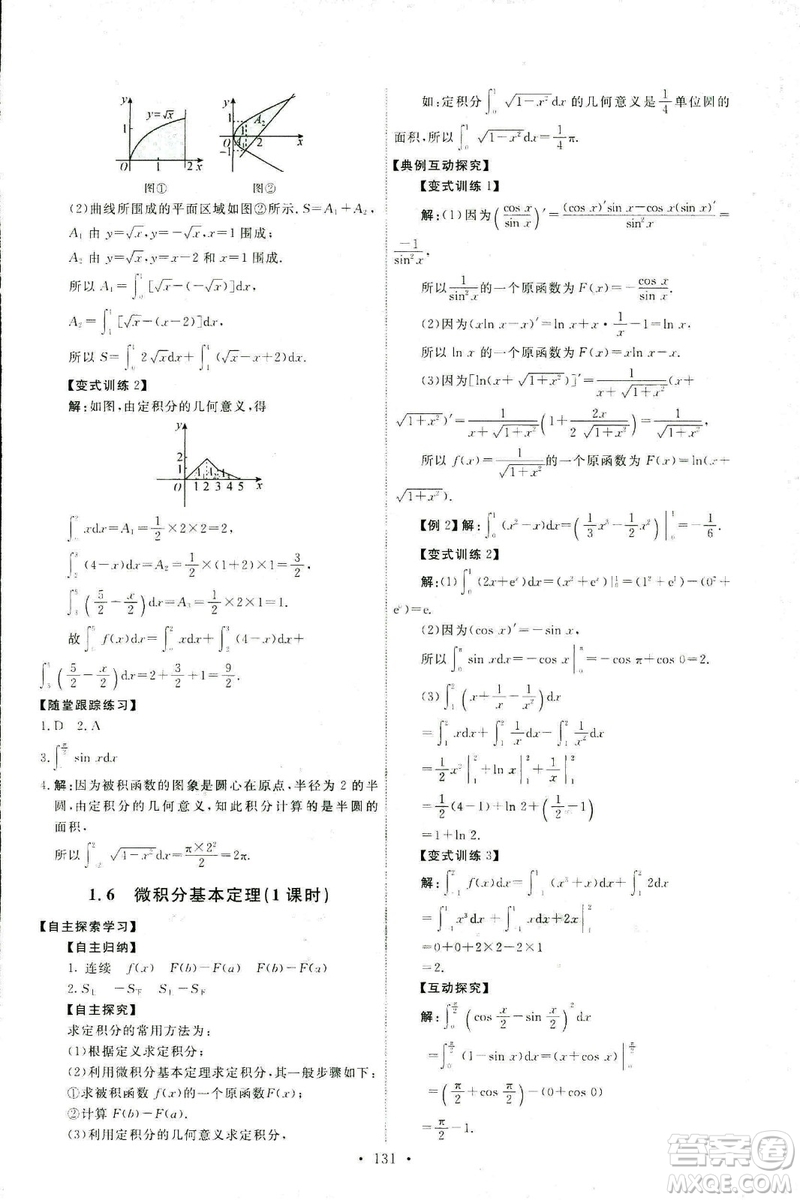 y y=√x 1 O 1 2 x
图①
y 1 A₂ O 2 x −1
图②
(2)曲线所围成的平面区域如图②所示, S=A₁+A₂,
A₁ 由 y=√x, y=−√x, x=1 围成;
A₂ 由 y=√x, y=x−2 和 x=1 围成.
所以 A₁=∫₀¹[√x−(−√x)]dx,
A₂=∫₁⁴[√x−(x−2)]dx,
【变式训练 2】
解:如图,由定积分的几何意义,得
y 2 1 O 1 2 3 4 5 x
∫₀²xdx=A₁=1/2×2×2=2,
∫₂³(4−x)dx=A₂=1/2×(1+2)×1=3/2,
∫₃⁵(5/2−x/2)dx=A₃=1/2×2×1=1.
故∫₀⁵f(x)dx=∫₀²xdx+∫₂³(4−x)dx+
∫₃⁵(5/2−x/2)dx=2+3/2+1=9/2.
【随堂跟踪练习】
1.D 2.A
4.解:因为被积函数的图象是圆心在原点,半径为 2 的半
圆,由定积分的几何意义,知此积分计算的是半圆的
面积,
所以∫₋₂²√(4−x²)dx=(π×2²)/2=2π.
1.6 微积分基本定理(1 课时)
【自主探索学习】
【自主归纳】
1. 连续 f(x) F(b)−F(a) F(b)−F(a)
2. S上 −S下 S上−S下
【自主探究】
求定积分的常用方法为:
(1)根据定义求定积分.
(2)利用微积分基本定理求定积分,其一般步骤如下:
①求被积函数的一个原函数F(x);
②计算 F(b)−F(a).
(3)利用定积分的几何意义求定积分.
如:定积分∫₀¹√(1−x²)dx的几何意义是1/4单位圆的
面积,所以∫₀¹√(1−x²)dx=1/4π.
【典例互动探究】
【变式训练 1】
解:(1)因为(cos x/sin x)′=((cos x)′sin x−cos x(sin x)′)/sin²x=
−1/sin²x,
所以1/sin²x的一个原函数为F(x)=−cos x/sin x.
(2)因为(xln x−x)′=ln x+x·1/x−1=ln x,
所以 ln x 的一个原函数为 F(x)=xln x−x.
(3)因为[ln(x+√(1+x²))]′=1/(x+√(1+x²))(x+
√(1+x²))′=1/(x+√(1+x²))(1+2x/(2√(1+x²)))=1/√(1+x²),
所以 f(x)=1/√(1+x²)的一个原函数为F(x)=ln(x+
√(1+x²)).
【例 2】解:∫₀¹(x²−x)dx=(1/3x³−1/2x²)|₀¹=−1/6.
【变式训练 2】
解:(1)∫₀¹(2x+eˣ)dx=(x²+eˣ)|₀¹=(1+e¹)−(0²+
e⁰)=e.
(2)因为(cos x)′=−sin x,
所以∫₀^πsin xdx=−cos x|₀^π=−cos π+cos 0=2.
(3)∫₁²(x+1/x)dx
=∫₁²xdx+∫₁²1/xdx
=1/2x²|₁²+ln x|₁²
=1/2(4−1)+ln 2
=1+ln 2.
【变式训练 3】
=0+0+2×2−2×1
=2.
【互动探究】
解:∫₀^(π/2)(cos x/2−sin x/2)²dx
=∫₀^(π/2)(1−sin x)dx=(x+cos x)|₀^(π/2)
=(π/2+cos π/2)−(0+cos 0)
=π/2−1.
• 131 •
答案圈
MXQE.COM